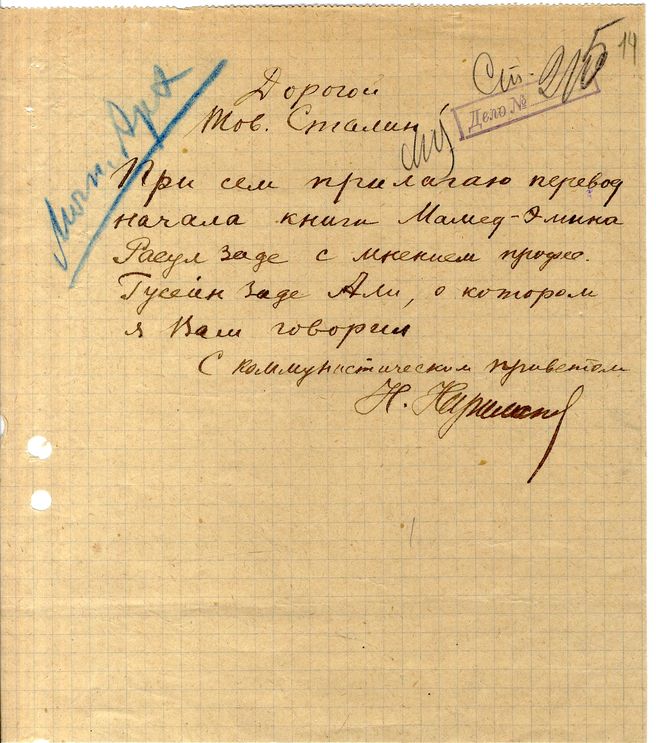 14
Ст. 215
Дело №
Личн. Арх
Дорогой
Тов. Сталин!
При сем прилагаю перевод
начала книги Мамед-Эмина
Расул Заде с мнением профес.
Гусейн Заде Али, о котором
я Вам говорил
С коммунистическим приветом
Н. Нариманов